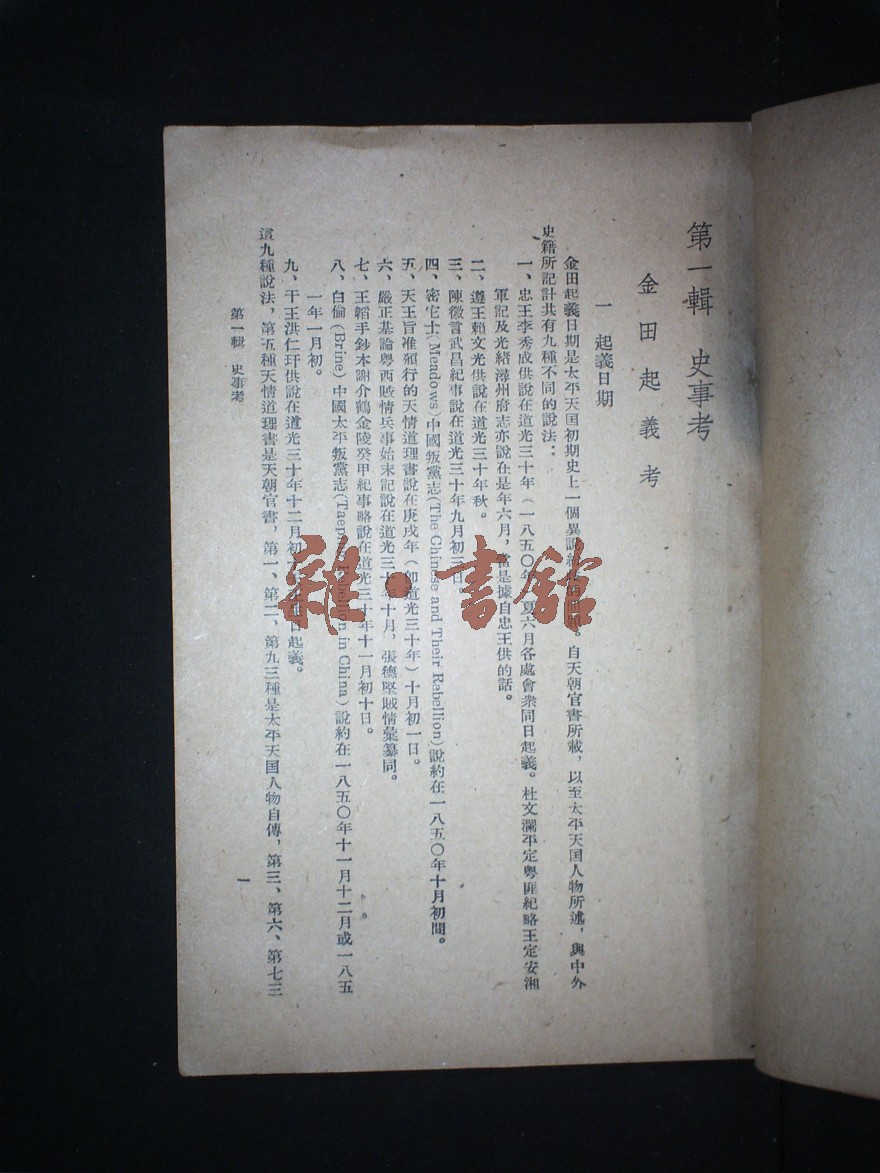 第一輯　史事考
金田起義考
一　起義日期
金田起義日期是太平天国初期史上一個異說紛。自天朝官書所載，以至太平天国人物所述，與中外
史籍所記計共有九種不同的說法：
一、忠王李秀成供說在道光三十年（一八五〇年夏六月各處會衆同日起義。杜文瀾平定粵匪紀略王定安湘
軍記及光緒潯州府志亦說在是年六月，當是據自忠王供的話。
二、遵王賴文光供說在道光三十年秋。
三、陳徽言武昌紀事說在道光三十年九月初日
四、密它士(Meadows)中國叛黨志(The Chinese and Their Rebellion)說約在一八五〇年十月初間。
五、天王旨准頒行的天情道理書說在庚戌年（卽道光三十年）十月初一日。
六、嚴正基論粵西賊情兵事始末記說在道光三十年十月，張德堅賊情彙纂同。
七、王韜手鈔本謝介鶴金陵癸甲紀事略說在道光三十年十一月初十日。
八、白倫(Brine)中國太平叛黨志(Taep Rebellion in China)說約在一八五〇年十一月十二月或一八五
一年一月初。
九、干王洪仁玕供說在道光三十年十二月初日起義。
這九種說法，第五種天情道理書是天朝官書，第一、第二、第九三種是太平天国人物自傳，第三、第六、第七三
第一輯　史事考
一
雜·書館